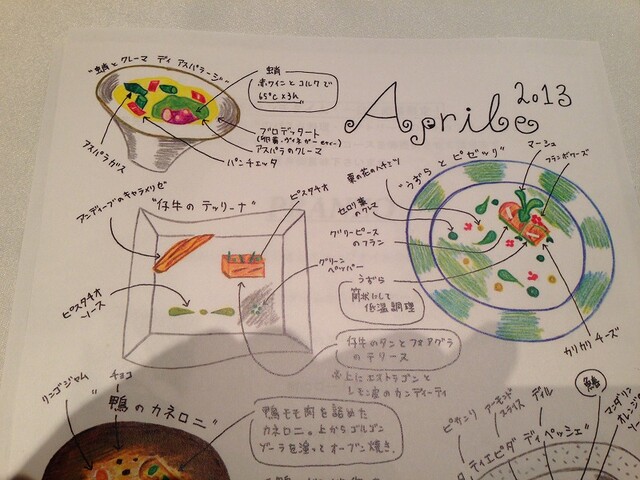 "蛸と クレーマ ディ アスパラージ"
蛸
赤ワインと コルクで
65°C×3h
ブロデッタート
(卵黄・ヴィネガー etc…)
アスパラのクレーマ
パンチェッタ
アスパラガス
Aprile
2013
マーシュ
フランボワーズ
"うずらと ピゼッリ"
栗の花のハチミツ
セロリ葉
のクレマ
グリーンピース
のフラン
うずら
筒状にして
低温調理
カリカリ チーズ
アンディーブのキャラメリゼ
"仔牛の テッリーナ"
ピスタチオ
グリーン
ペッパー
ピスタチオ
ソース
仔牛のタンとフォアグラ
の テリーヌ
上にエストラゴンと
レモン皮のカンディーティ
リンゴジャム
チョコ
"鴨の カネロニ"
鴨モモ肉を詰めた
カネロニ。上からゴルゴン
ゾーラを塗ってオーブン焼き.
ピサンリ
アーモンド
スライス
ディル
マンダリン
オレンジ
ティエピダ ディ ペッシェ"